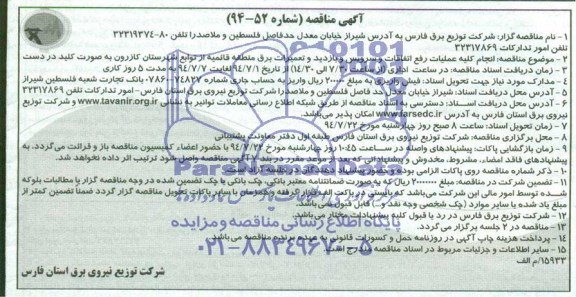 آگهی مناقصه (شماره ۵۲-۹۴)
۱- نام مناقصه گزار: شرکت توزیع برق فارس به آدرس شیراز خیابان معدل حدفاصل فلسطین و ملاصدرا تلفن ۸۰-۳۲۳۱۹۳۷۴
تلفن امور تدارکات ۳۲۳۱۷۸۶۹
۲- موضوع مناقصه: انجام کلیه عملیات رفع اتفاقات و سرویس و بازدید و تعمیرات برق منطقه قائمیه از توابع شهرستان کازرون به صورت کلید در دست
۳- زمان دریافت اسناد مناقصه: در ساعت اداری از تاریخ ۹۴/۷/۱ تا تاریخ ۹۴/۷/۷ به مدت ۵ روز کاری
۴- مدارک مورد نیاز جهت تحویل اسناد: فیش واریزی به مبلغ ریال واریز به حساب جاری شماره ۰۷۸۶۰۰۷۴۸۲۷ بانک تجارت شعبه فلسطین شیراز
۵- آدرس محل دریافت اسناد: شیراز خیابان معدل حد فاصل فلسطین و ملاصدرا شرکت توزیع نیروی برق استان فارس- امور تدارکات تلفن ۳۲۳۱۷۸۶۹
۶- آدرس محل دریافت اسناد: دسترسی به اسناد مناقصه از طریق شبکه اطلاع رسانی معاملات توانیر به نشانی www.tavanir.org.ir و شرکت توزیع
www.farsedc.ir امکان پذیر می‌باشد.
۷- زمان تحویل اسناد: ساعت ۸ صبح روز چهارشنبه مورخ ۹۴/۷/۲۲
۸- محل برگزاری مناقصه: شرکت توزیع نیروی برق استان فارس طبقه اول دفتر معاونت پشتیبانی
۹- زمان بازگشایی پاکات: پیشنهادهای واصله در ساعت ۱۰:۴۵ روز چهارشنبه مورخ ۹۴/۷/۲۲ با حضور اعضاء کمیسیون مناقصه باز و قرائت می‌گردد. به
پیشنهادهای فاقد امضاء، مشروط، مخدوش و پیشنهاداتی که بعد از موعد مقرر در بند ۷ آگهی مناقصه واصل شود ترتیب اثر داده نخواهد شد.
۱۰- ذکر شماره مناقصه روی پاکات الزامی بوده و حضور
۱۱- تضمین شرکت در مناقصه: مبلغ ریال که به صورت ضمانتنامه معتبر بانکی، چک بانکی یا چک تضمین شده در وجه مناقصه گزار یا مطالبات بلوکه
شده توسط امور مالی این شرکت می‌باشد که بایستی در پاکت الف قرار گرفته و همزمان با سایر پاکات تحویل مناقصه گزار گردد ضمناً تضمین کمتر از
مبلغ یاد شده یا سایر موارد (چک شخصی وجه نقد و ..) قابل قبول نمی‌باشد.
۱۲- شرکت توزیع برق فارس در رد یا قبول کلیه پیشنهادات مختار می‌باشد.
۱۳- مناقصه در ۲ جلسه برگزار می گردد.
۱۴- پرداخت هزینه چاپ آگهی در روزنامه حمل و کسورات قانونی به عهده برنده مناقصه می‌باشد.
۱۵- سایر اطلاعات و جزئیات مربوط در اسناد مناقصه مندرج است.
۱۵۹۳۳/م الف
شرکت توزیع نیروی برق استان فارس
پایگاه اطلاع رسانی مناقصه و مزایده
۰۲۱-۸۸۳۴۹۶۷۰-۵